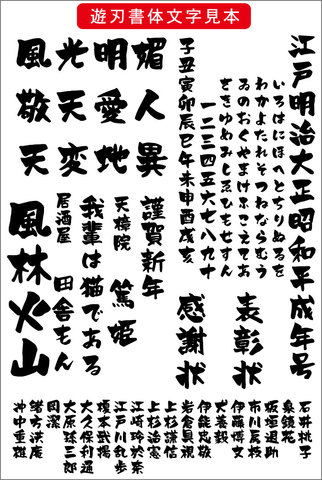 遊刃書体文字見本
江戸明治大正昭和平成年号
いろはにほへとちりぬるを
わかよたれそつねならむう
ゐのおくやまけふこえてあ
さきゆめみしゑひもせすん
一二三四五六七八九十
子丑寅卯辰巳午未申酉戌亥
媚人異
明愛地
光天変
風敬天
表彰状
感謝状
謹賀新年
天樟院 篤姫
我輩は猫である
居酒屋 田舎もん
風林火山
石井桃子
泉鏡花
板垣退助
市川房枝
伊藤博文
犬養毅
伊能忠敬
岩倉具視
上杉謙信
上杉治憲
江崎玲於奈
江戸川乱歩
榎本武揚
大久保利通
大原孫三郎
岡潔
緒方洪庵
沖中重雄